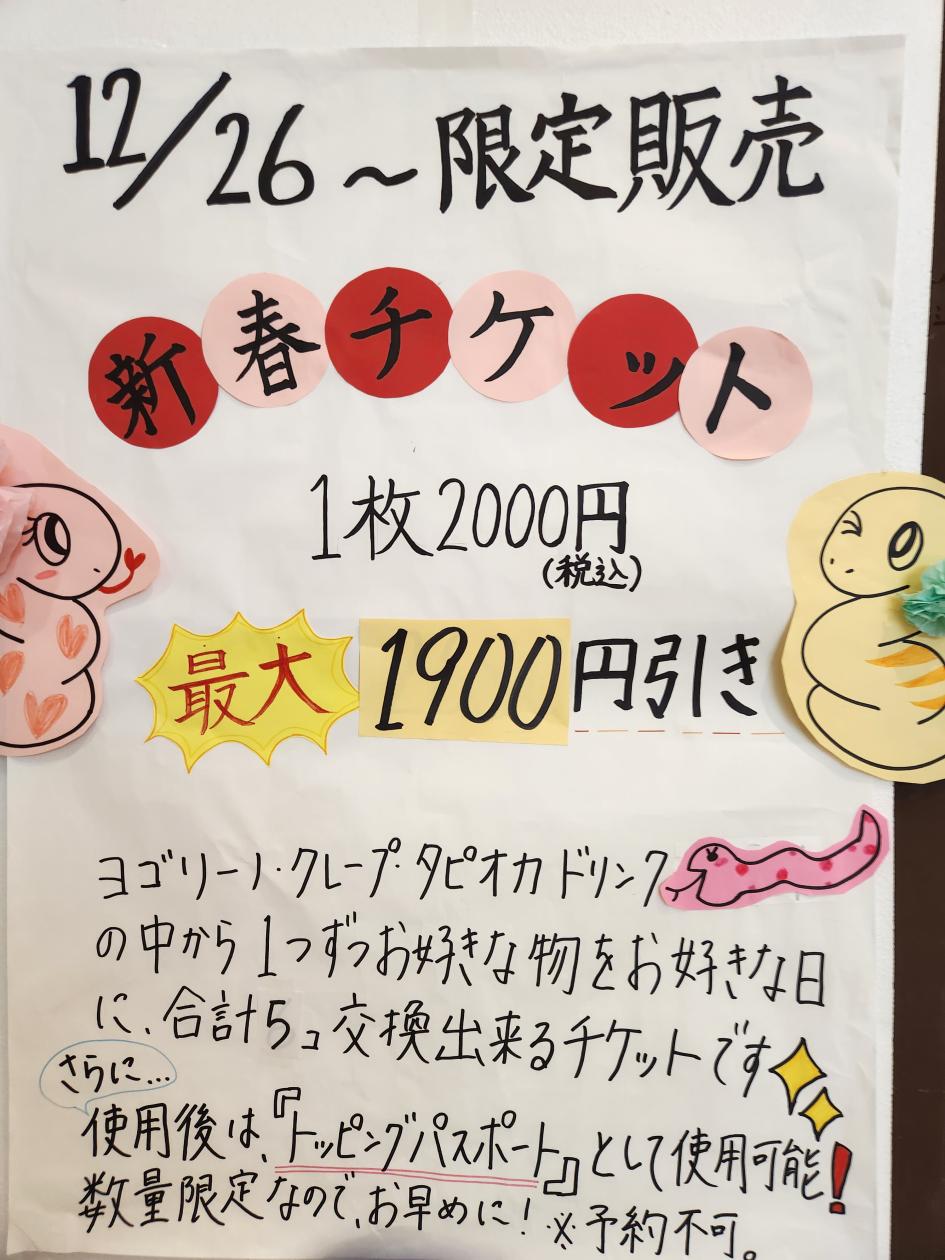 12/26～限定販売
新春チケット
1枚2000円
(税込)
最大1900円引き
ヨゴリーノ・クレープ・タピオカドリンク
の中から1つずつお好きな物をお好きな日
に、合計5コ交換出来るチケットです
さらに…
使用後は、『トッピングパスポート』として使用可能!
数量限定なので、お早めに! ※予約不可。